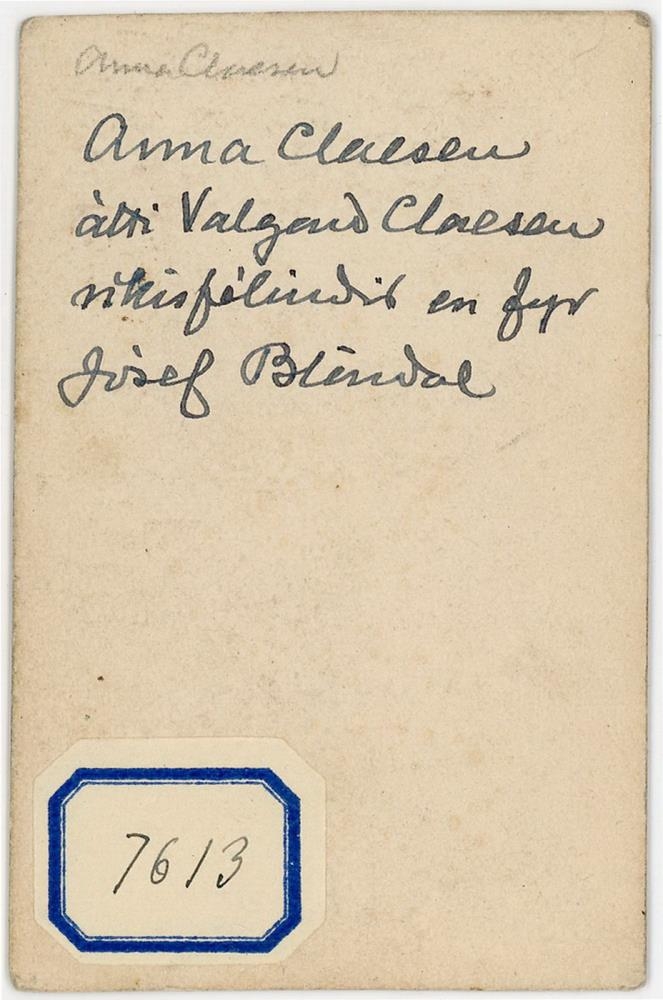 Anna Claesen
Anna Claesen
átti Valgard Claesen
ríkisféhirdir en fyr
Jósef Blöndal
7613